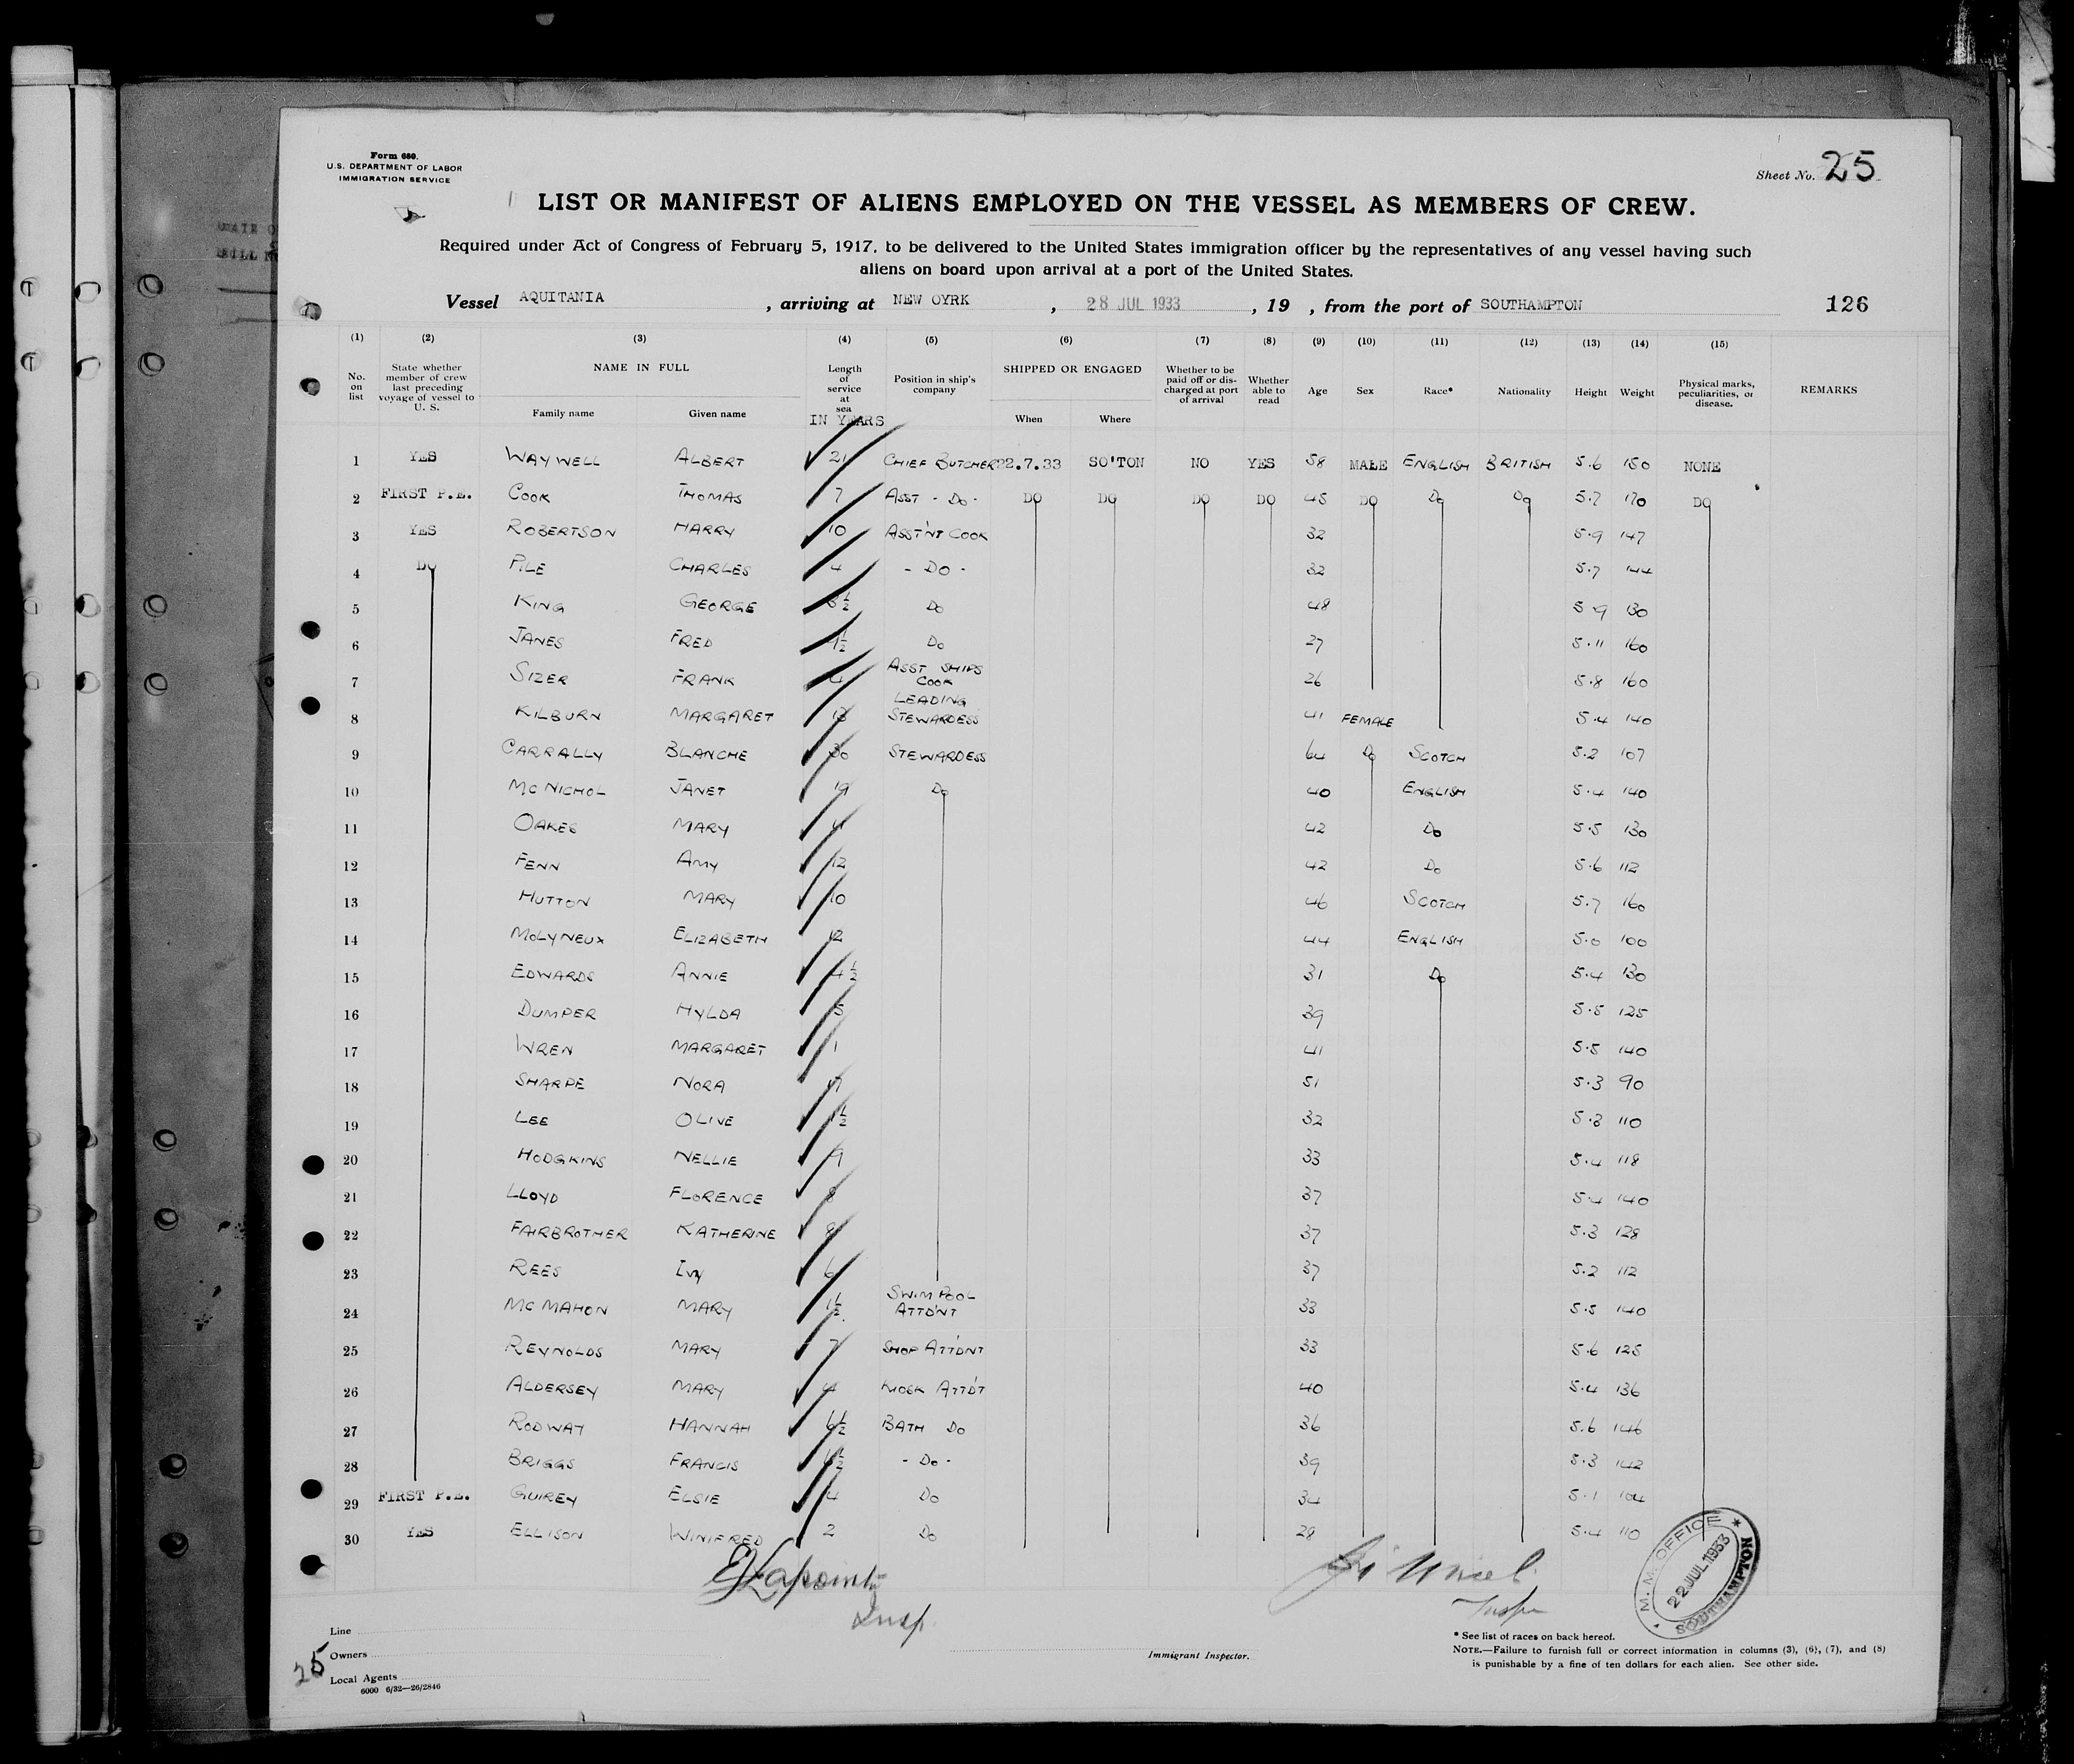 Form 680.
U.S. DEPARTMENT OF LABOR
IMMIGRATION SERVICE
Sheet No. 25
LIST OR MANIFEST OF ALIENS EMPLOYED ON THE VESSEL AS MEMBERS OF CREW.
Required under Act of Congress of February 5, 1917, to be delivered to the United States immigration officer by the representatives of any vessel having such
aliens on board upon arrival at a port of the United States.
Vessel AQUITANIA , arriving at NEW OYRK , 28 JUL 1933 , 19 , from the port of SOUTHAMPTON 126
(1) (2) (3) (4) (5) (6) (7) (8) (9) (10) (11) (12) (13) (14) (15)
No. on list State whether member of crew last preceding voyage of vessel to U. S. NAME IN FULL Family name Given name Length of service at sea IN YEARS Position in ship's company SHIPPED OR ENGAGED When Where Whether to be paid off or discharged at port of arrival Whether able to read Age Sex Race* Nationality Height Weight Physical marks, peculiarities, or disease. REMARKS
1 YES WAYWELL ALBERT 21 CHIEF BUTCHER 22.7.33 SO'TON NO YES 58 MALE ENGLISH BRITISH 5.6 150 NONE
2 FIRST P.E. COOK THOMAS 7 ASST - DO - DO DO DO DO 45 DO DO DO 5.7 170 DO
3 YES ROBERTSON HARRY 10 ASST'NT COOK 32 5.9 147
4 DO PILE CHARLES 4 - DO - 32 5.7 144
5 KING GEORGE ½ DO 48 5.9 130
6 JANES FRED ½ DO 27 5.11 160
7 SIZER FRANK 4 ASST SHIPS COOK 26 5.8 160
8 KILBURN MARGARET 13 LEADING STEWARDESS 41 FEMALE 5.4 140
9 CARRALLY BLANCHE 30 STEWARDESS 64 DO SCOTCH 5.2 107
10 MC NICHOL JANET 19 DO 40 ENGLISH 5.4 140
11 OAKES MARY 42 DO 5.5 130
12 FENN AMY 12 42 DO 5.6 112
13 HUTTON MARY 10 46 SCOTCH 5.7 160
14 MOLYNEUX ELIZABETH 12 44 ENGLISH 5.0 100
15 EDWARDS ANNIE 4½ 31 DO 5.4 130
16 DUMPER HYLDA 5 39 5.5 125
17 WREN MARGARET 1 41 5.5 140
18 SHARPE NORA 51 5.3 90
19 LEE OLIVE 1½ 32 5.3 110
20 HODGKINS NELLIE 9 33 5.4 118
21 LLOYD FLORENCE 8 37 5.4 140
22 FAIRBROTHER KATHERINE 8 37 5.3 128
23 REES IVY 6 37 5.2 112
24 MC MAHON MARY 1½ SWIM POOL ATTD'NT 33 5.5 140
25 REYNOLDS MARY 7 SHOP ATT'DNT 33 5.6 125
26 ALDERSEY MARY 4 KIOSK ATTD'T 40 5.4 136
27 RODWAY HANNAH 6½ BATH DO 36 5.6 146
28 BRIGGS FRANCIS ½ - DO - 39 5.3 142
29 FIRST P.E. GUIREY ELSIE 4 DO 34 5.1 104
30 YES ELLISON WINIFRED 2 DO 28 5.4 110
Lapointe
Insp.
M. M. OFFICE
22 JUL 1933
SOUTHAMPTON
Line
Owners
Local Agents
6000 6/32—26/2846
25
Immigrant Inspector.
* See list of races on back hereof.
NOTE.—Failure to furnish full or correct information in columns (3), (6), (7), and (8)
is punishable by a fine of ten dollars for each alien. See other side.